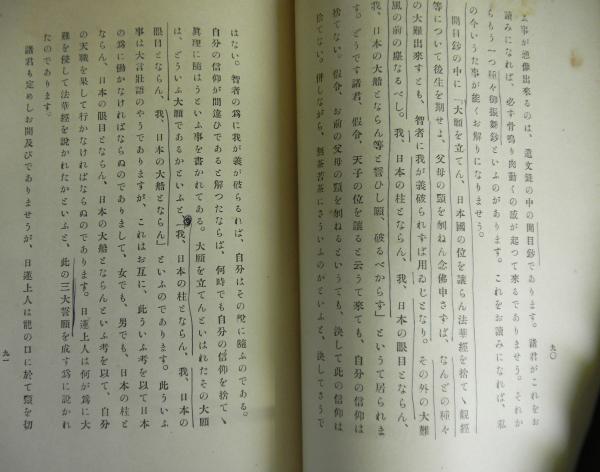 ふ事が想像出來るのは、遺文錄の中の開目鈔であります。諸君がこれをお
讀みになれば、必ず骨鳴り肉動くの感が起つて來るでありませう。それか
らもう一つ種々御振舞鈔といふのがあります。これをお讀みになれば、私
の今いうた事が能くお解りになりませう。
開目鈔の中に「大願を立てん、日本國の位を讓らん法華經を捨てゝ觀經
等について後生を期せよ、父母の頸を刎ねん念佛申さずば、なんどの種々
の大難出來すとも、智者に我が義破られずば用ゐじとなり。その外の大難
風の前の塵なるべし。我、日本の柱とならん、我、日本の眼目とならん、
我、日本の大船とならん等と誓ひし願、破るべからず」というて居られま
す。どうです諸君、假令、天子の位を讓ると云うて來ても、自分の信仰は
捨てない。假令、お前の父母の頸を刎ねるというても、決して此の信仰は
捨てない。併しながら、無茶苦茶にさういふのかといふと、決してさうで
九〇
はない。智者の爲に我が義が破らるれば、自分はその說に隨ふのである。
自分の信仰が間違ひであると解つたならば、何時でも自分の信仰を捨てゝ
眞理に隨はうといふ事を書かれてある。大願を立てんといはれたその大願
は、どういふ大願であるかといふと、「我、日本の柱とならん、我、日本の
眼目とならん、我、日本の大船とならん」といふのであります。此ういふ
事は大言壯語のやうでありますが、これはお互に、此ういふ考を以て日本
の爲に働かなければならぬのでありまして、女でも、男でも、日本の柱と
ならん、日本の眼目とならん、日本の大船とならんといふ考を以て、自分
の天職を果して行かなければならぬのであります。日蓮上人は何が爲に大
難を侵して法華經を說かれたかといふと、此の三大誓願を成す爲に說かれ
たのであります。
諸君も定めしお聞及びでありませうが、日蓮上人は龍の口に於て頸を切
九一